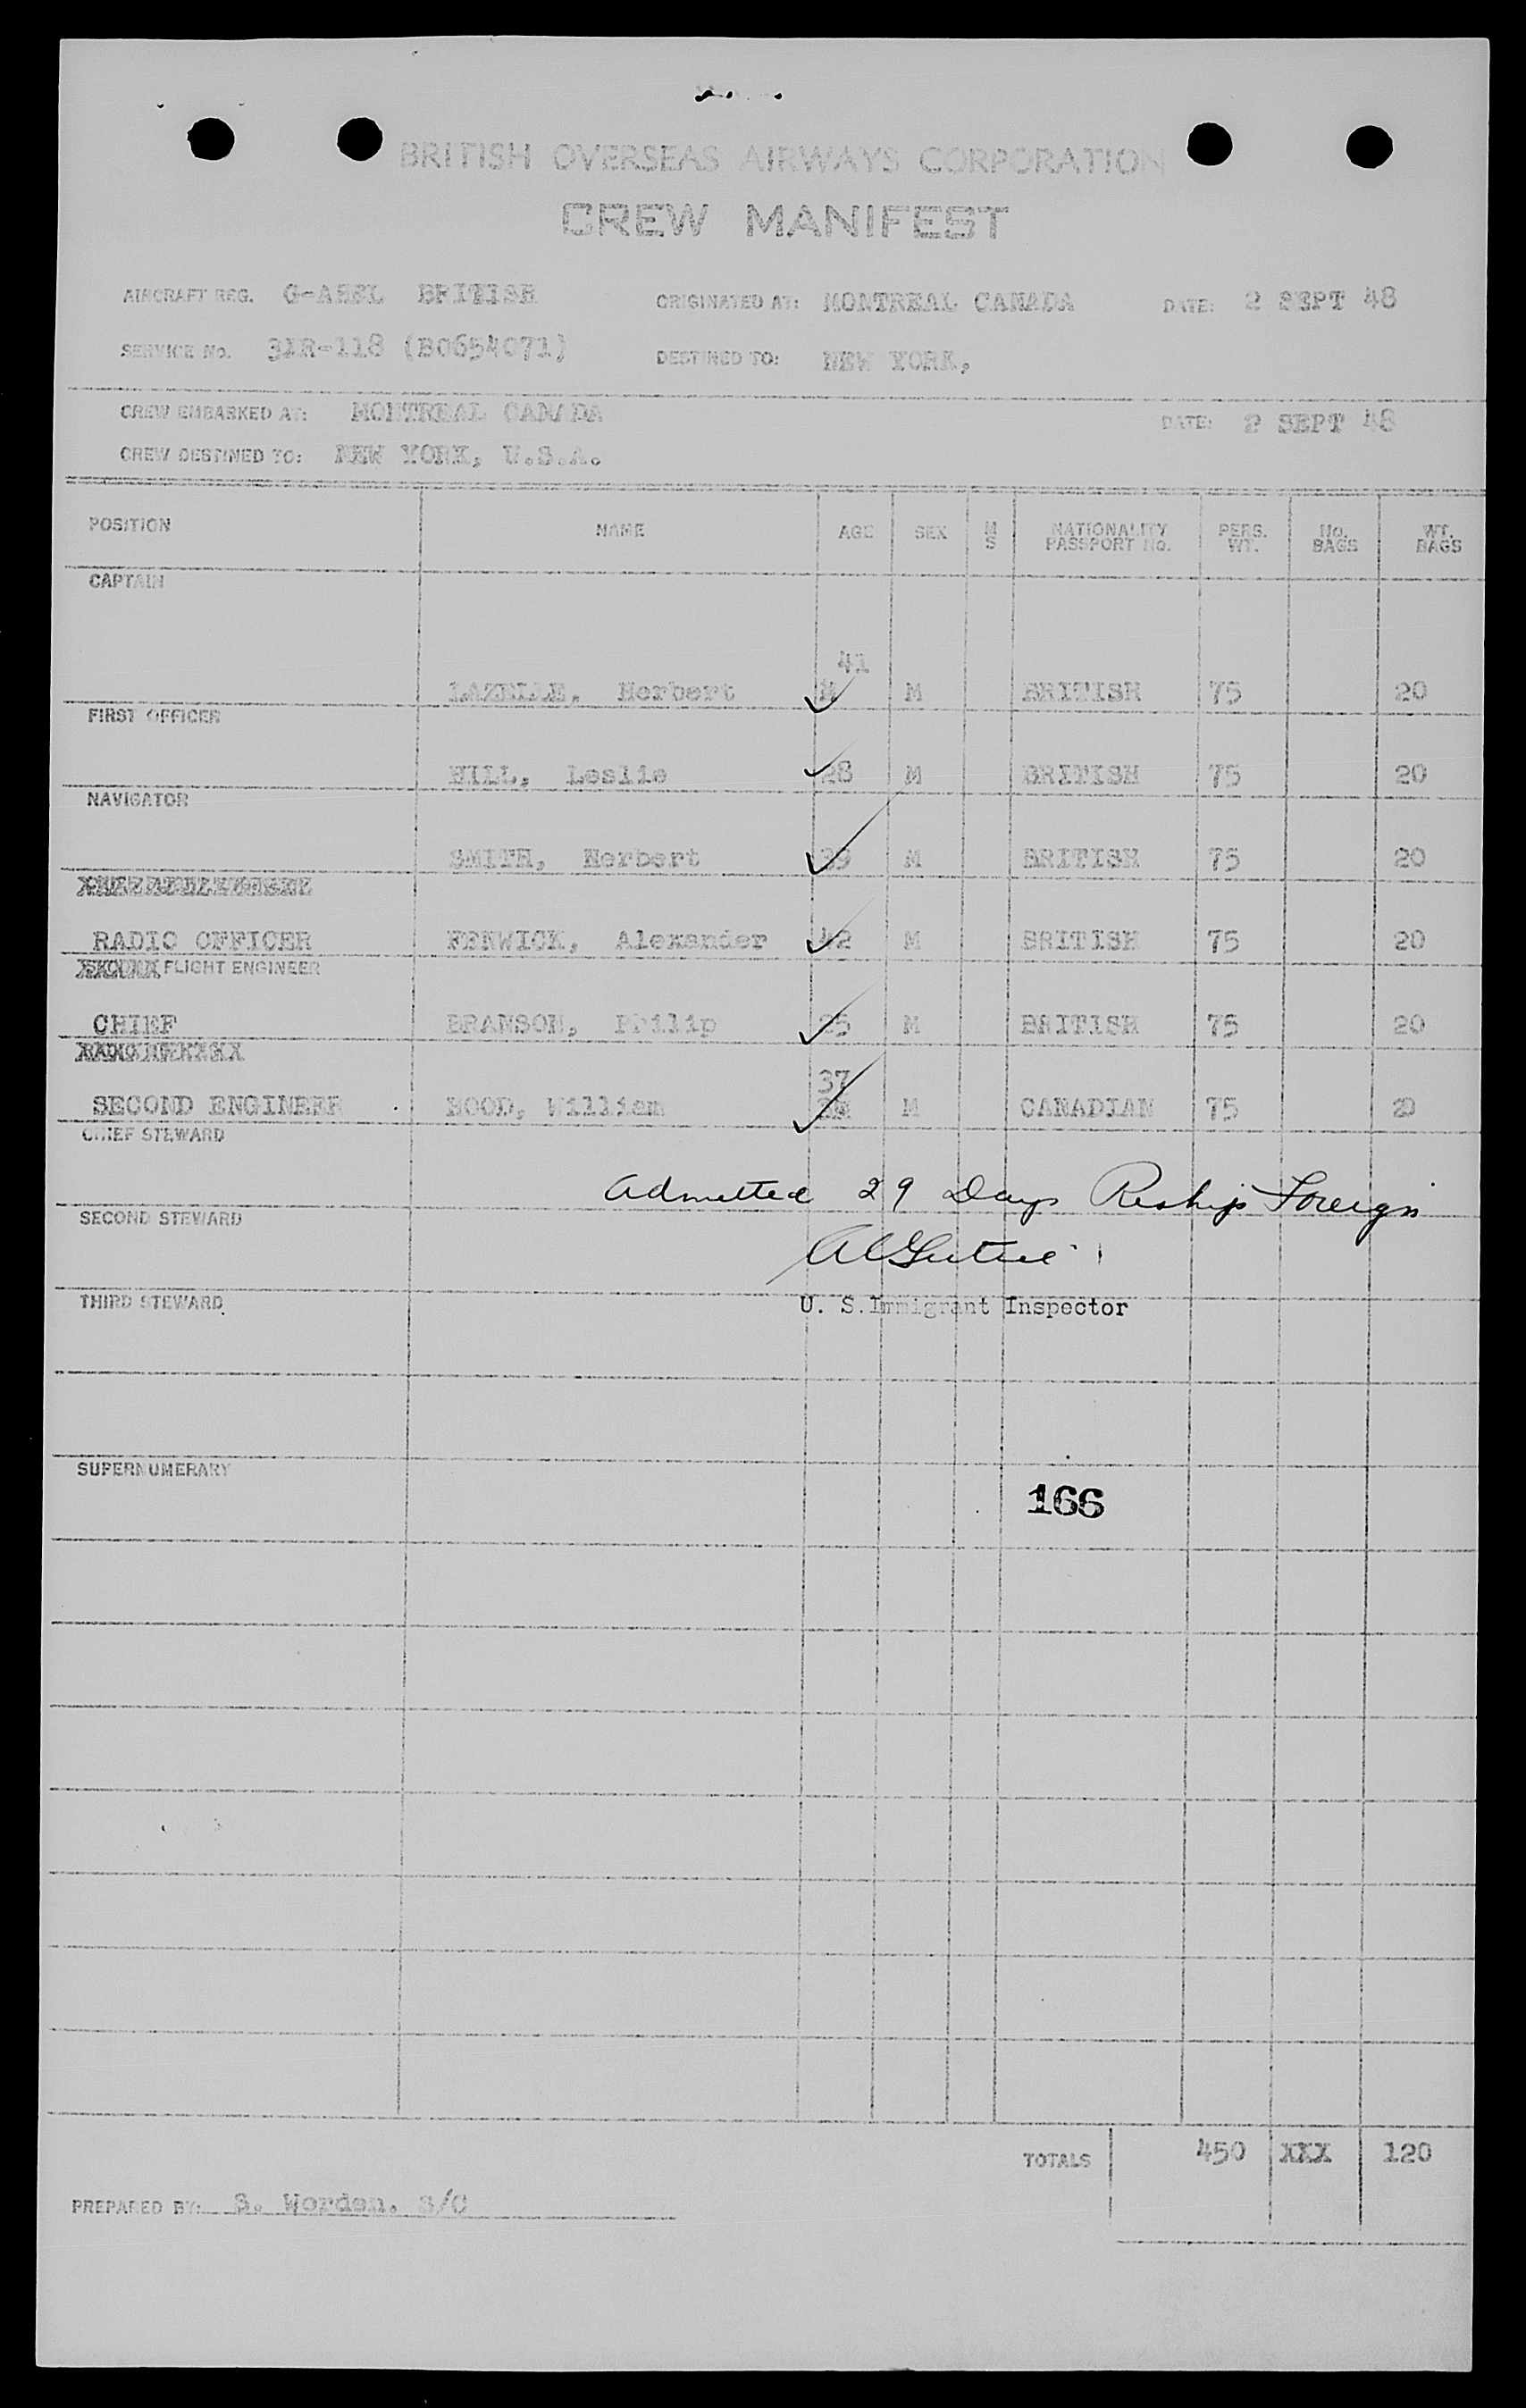 BRITISH OVERSEAS AIRWAYS CORPORATION
CREW MANIFEST
AIRCRAFT REG. BRITISH ORIGINATED AT: MONTREAL CANADA DATE: 2 SEPT 48
SERVICE No. 31R-118 (B0654071) DESTINED TO: NEW YORK,
CREW EMBARKED AT: MONTREAL CANADA DATE: 2 SEPT 48
CREW DESTINED TO: NEW YORK, U.S.A.
POSITION NAME AGE SEX M S NATIONALITY PASSPORT No. PERS. WT. No. BAGS WT. BAGS
CAPTAIN
41
LAZELLE, Herbert M BRITISH 75 20
FIRST OFFICER
HILL, Leslie 28 M BRITISH 75 20
NAVIGATOR
SMITH, Herbert 39 M BRITISH 75 20
RADIO OFFICER FENWICK, Alexander 42 M BRITISH 75 20
FLIGHT ENGINEER
CHIEF BRANSON, Philip 25 M BRITISH 75 20
37
SECOND ENGINEER HOOD, William M CANADIAN 75 20
CHIEF STEWARD
Admitted 29 Days Reship Foreign
SECOND STEWARD
THIRD STEWARD U. S. Immigrant Inspector
SUPERNUMERARY
166
TOTALS 450 XXX 120
PREPARED BY: S. Worden. S/C